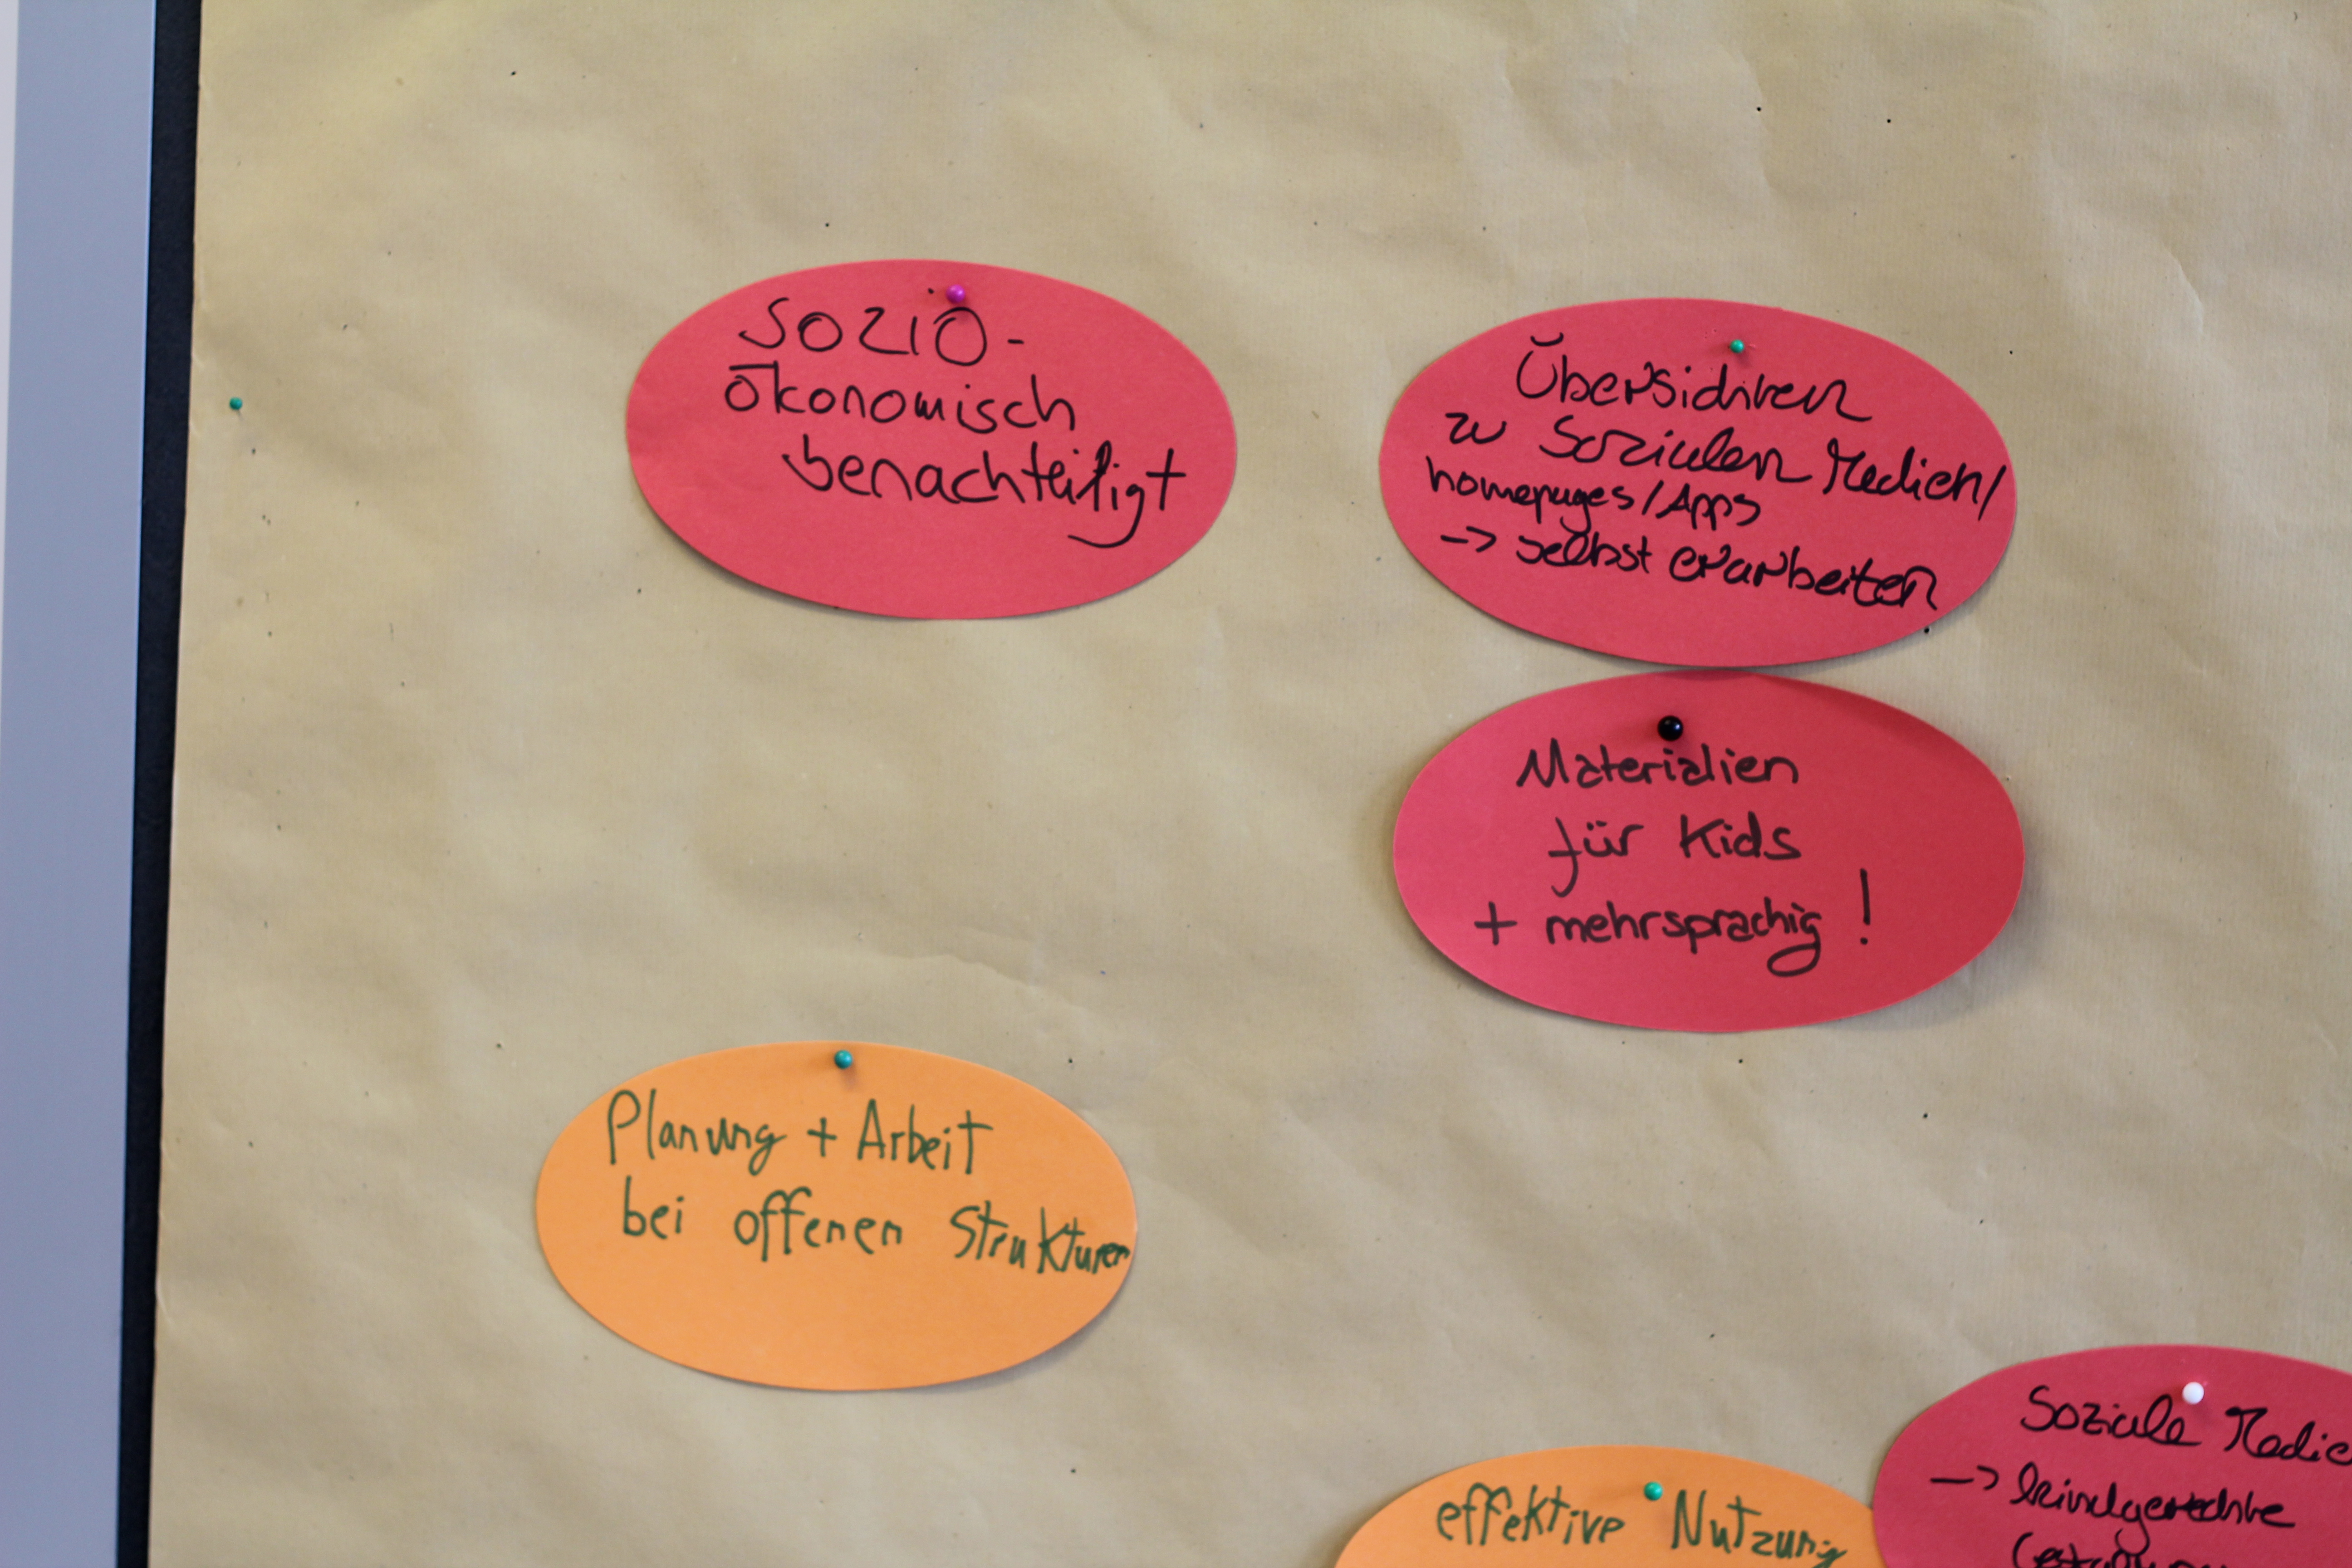 SOZIO-
ökonomisch
benachteiligt
Übersichten
zu Sozialen Medien/
homepages/Apps
-> selbst erarbeiten
Materialien
für Kids
+ mehrsprachig !
Planung + Arbeit
bei offenen Strukturen
effektive Nutzung
Soziale Medie
-> kindgerechte